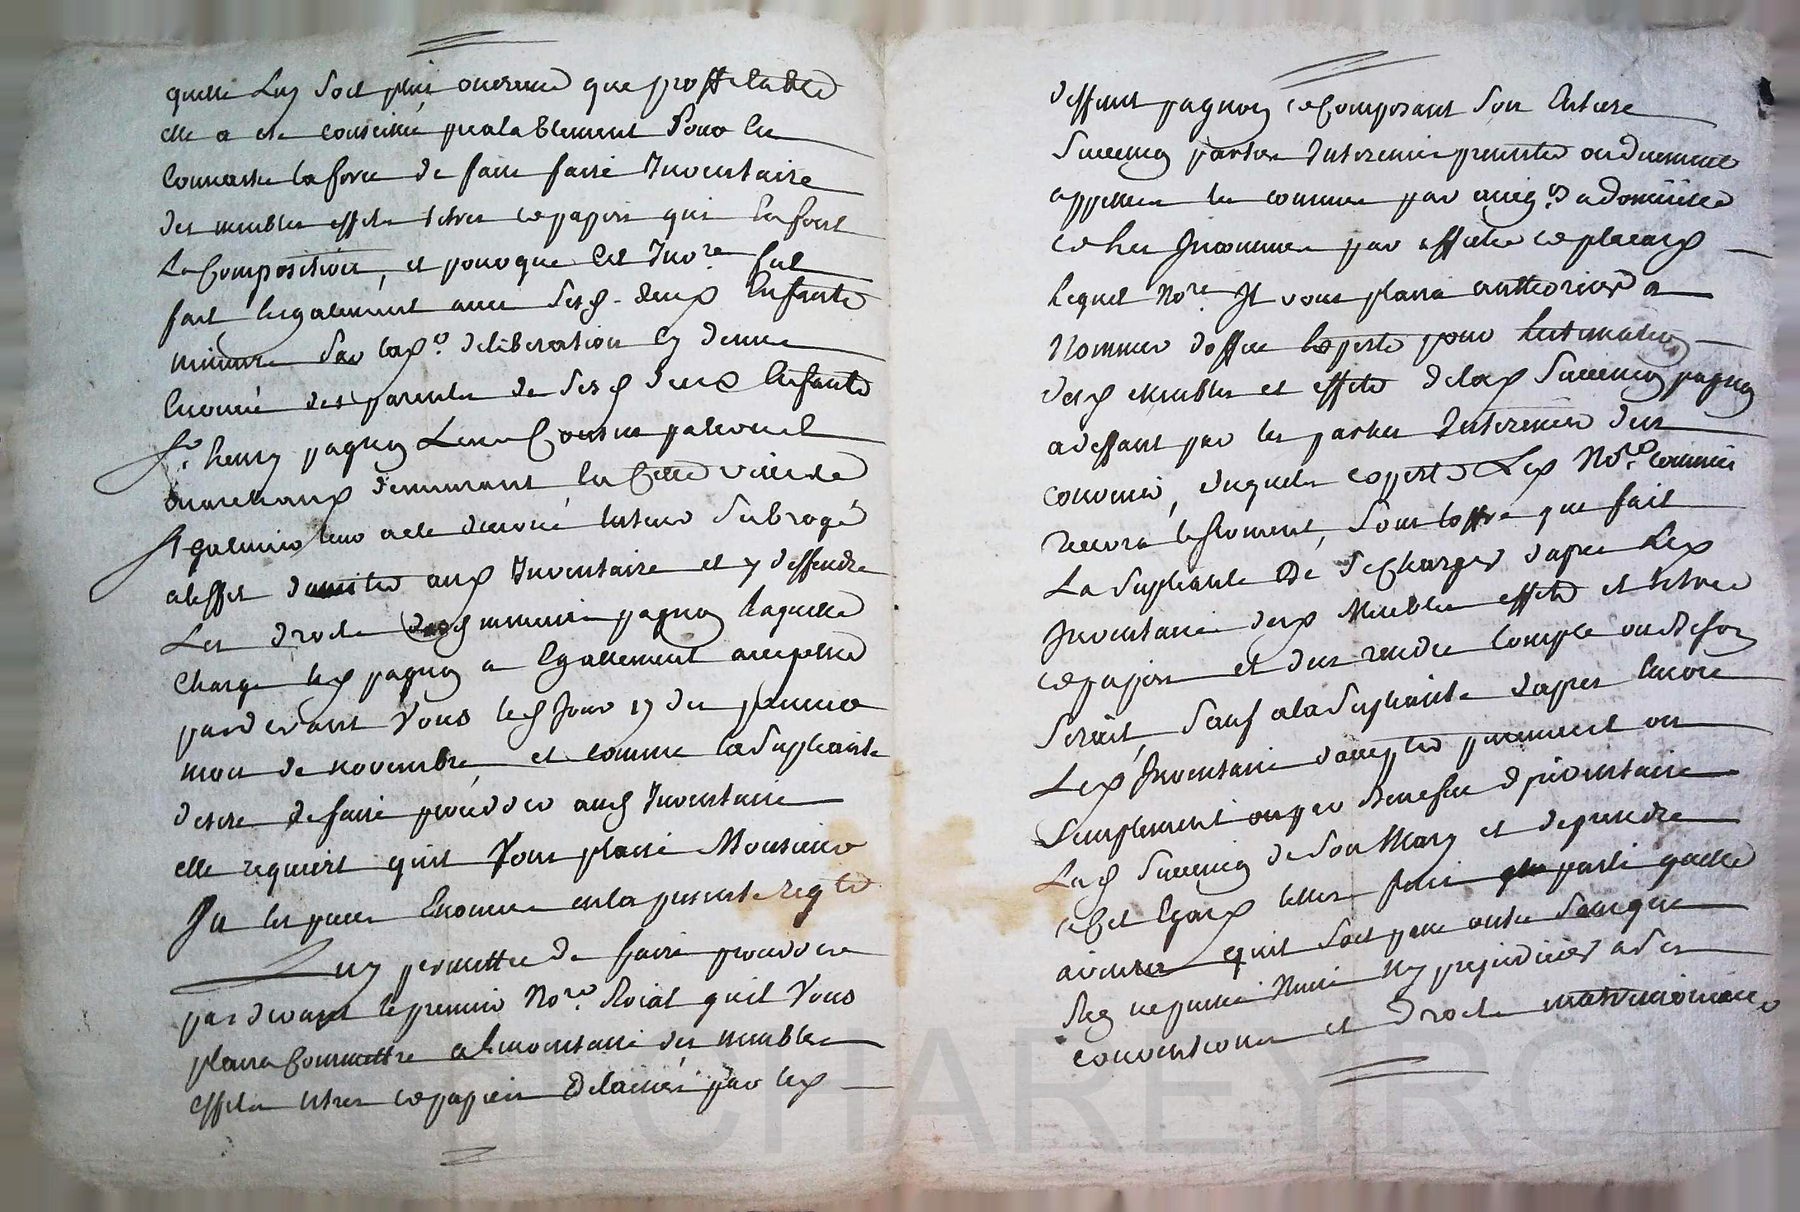 quelle luy soit plus onereuse que proffitable
elle a été conseillée prealablement pour en
connaitre la force de faire faire Inventaire
des meubles effets titres et papiers qui en font
la Composition, et pour que cet Invre fut
fait legalement avec sesd. deux Enfants
mineurs par lade deliberation cy dessus
Enoncée des parents de sesd deux Enfants
sr henry pagnon Leur Cousin paternel
marchand demeurant en cette ville de
st galmier leur a été donné tuteur Subrogé
a leffet dassister aud Inventaire et y deffendre
Les droits desd mineurs pagnon laquelle
charge led pagnon a Egallement acceptée
pardevant Vous led Jour 17 du present
mois de novembre, et comme la Supliante
desire de faire proceder aud Inventaire
elle requiert quil Vous plaise Monsieur
Vu les pieces Enoncées en la presente reqte
Luy permettre de faire proceder
par devant le premier Nore Roial quil Vous
plaira Commettre a l'inventaire des meubles
effets titres et papiers delaissés par led
deffunt pagnon et Composant son Entiere
Succession parties Interessées presentes ou duement
appellées les connues par assigon a domicille
et les Inconnues par affiche et placard
lequel Nore Il vous plaira authoriser a
Nommer doffice Experts pour lestimation
desd meubles et effets de lad Succession pagnon
a deffaut par les parties Interessées den
convenir, desquels experts Led Nore commis
recevra le serment, sous loffre que fait
La Supliante de se charger dapres Led
Inventaire desd Meubles effets et titres
et papiers et den rendre compte ou Besoin
seroit, sauf a la Supliante dapres encore
Led Inventaire daccepter purement ou
simplement ou par Benefice d'inventaire
Lad Succession de Son Mary et de prendre
a cet Egard telles fins que parti quelle
avisera quil soit pour autre Sans que
Rien ne puisse Nuire Ny prejudicier a ses
conventions et droits matrimoniaux
CHAREYRON